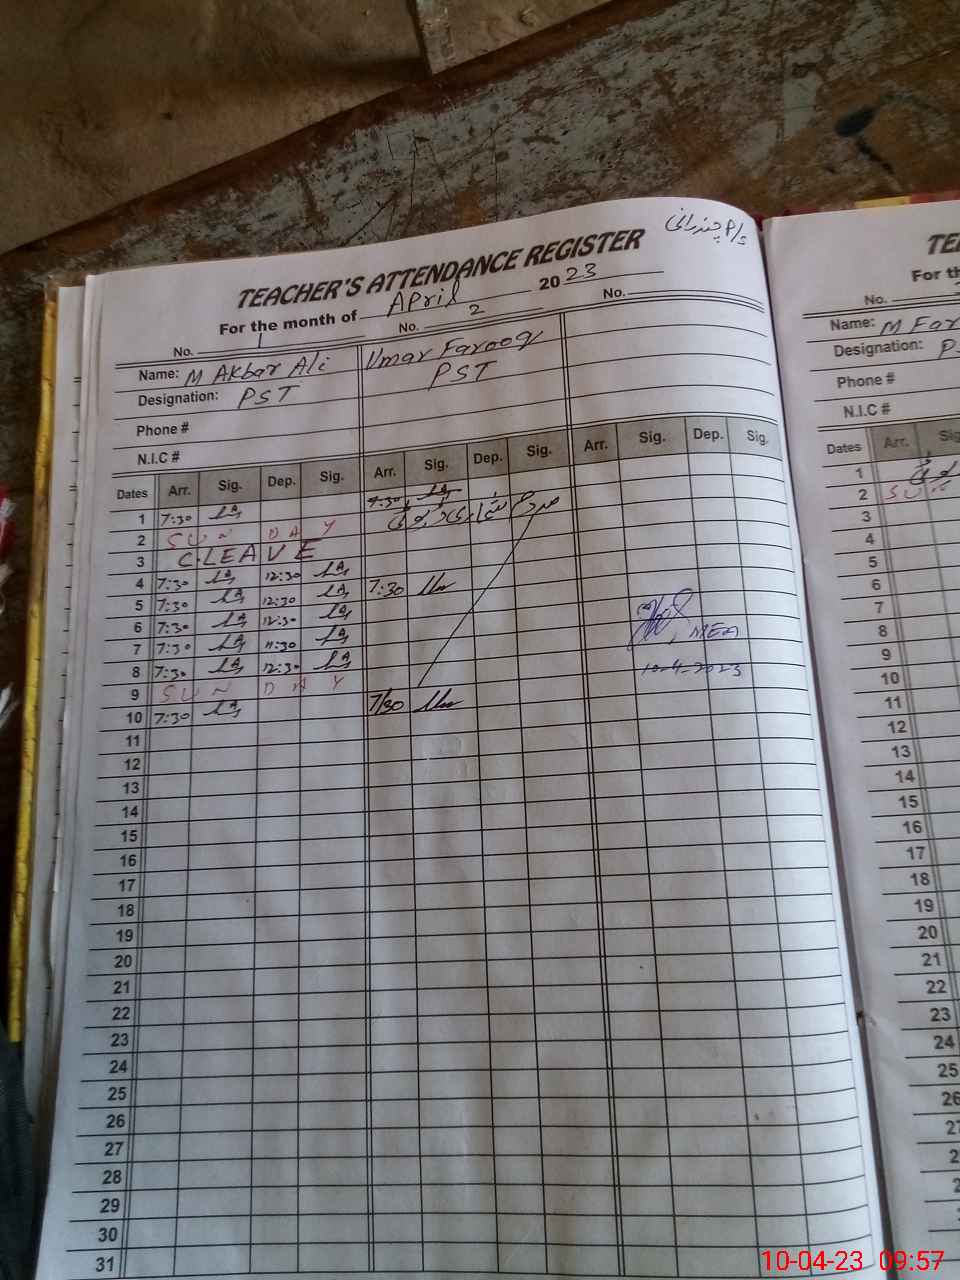 P/S چندرانی
TEACHER'S ATTENDANCE REGISTER
For the month of April 2023
No. 1 No. 2 No.
Name: M Akbar Ali Umar Farooq
Designation: PST PST
Phone #
N.I.C #
Dates Arr. Sig. Dep. Sig. Arr. Sig. Dep. Sig. Arr. Sig. Dep. Sig.
1 7:30 7:30
2 SUNDAY مردم شماری ڈیوٹی
3 C.LEAVE
4 7:30 12:30
5 7:30 12:30 7:30
6 7:30 12:30
7 7:30 11:30
8 7:30 12:30
9 SUNDAY
10 7:30 7/30
MEA
10-4-2023
11
12
13
14
15
16
17
18
19
20
21
22
23
24
25
26
27
28
29
30
31
For th
No.
Name: M Far
Designation: P
Phone #
N.I.C #
Dates Arr.
1
2 SUN
3
4
5
6
7
8
9
10
11
12
13
14
15
16
17
18
19
20
21
22
23
24
25
26
10-04-23 09:57